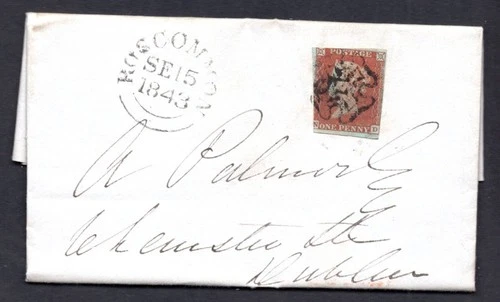 ROSCOMMON
SE 15
1843
POSTAGE
ONE PENNY
A Palmer Esq
Dublin